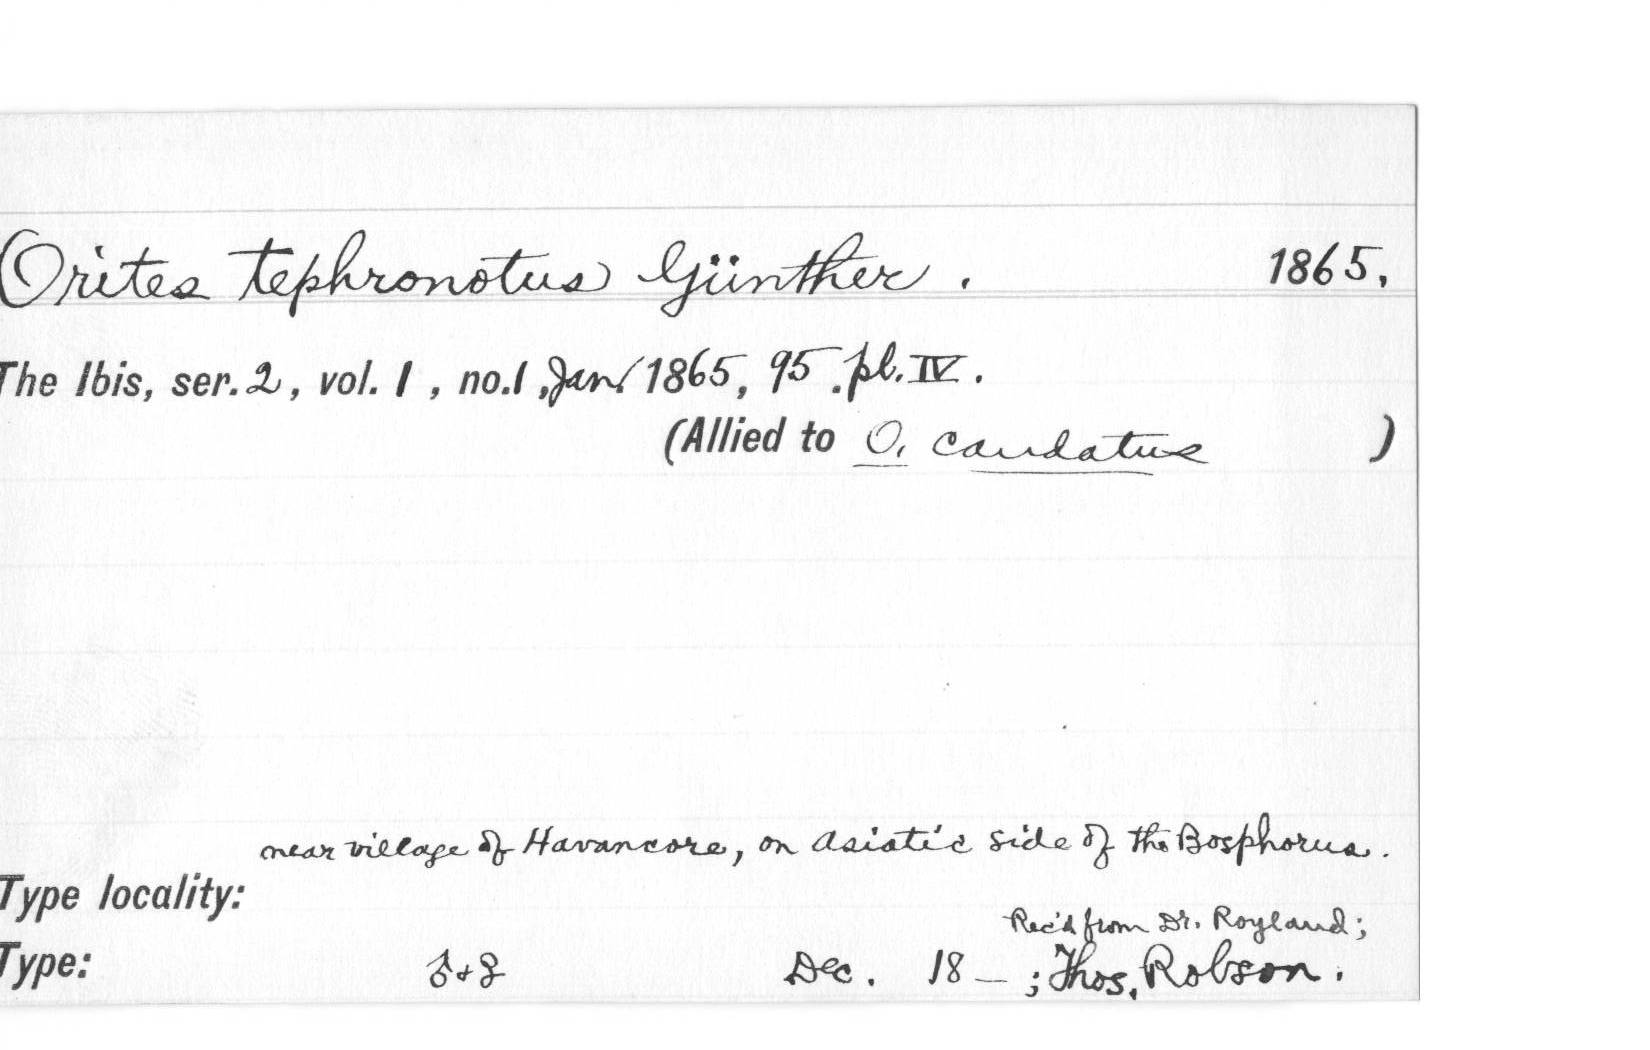 Orites tephronotus Günther. 1865.
The Ibis, ser. 2, vol. 1, no. 1, Jan. 1865, 95. pl. IV.
(Allied to O. caudatus )
near village of Havancore, on Asiatic side of the Bosphorus.
Type locality:
Rec'd from Dr. Royland;
Type: ♂ + ♀ Dec. 18— ; Thos. Robson.